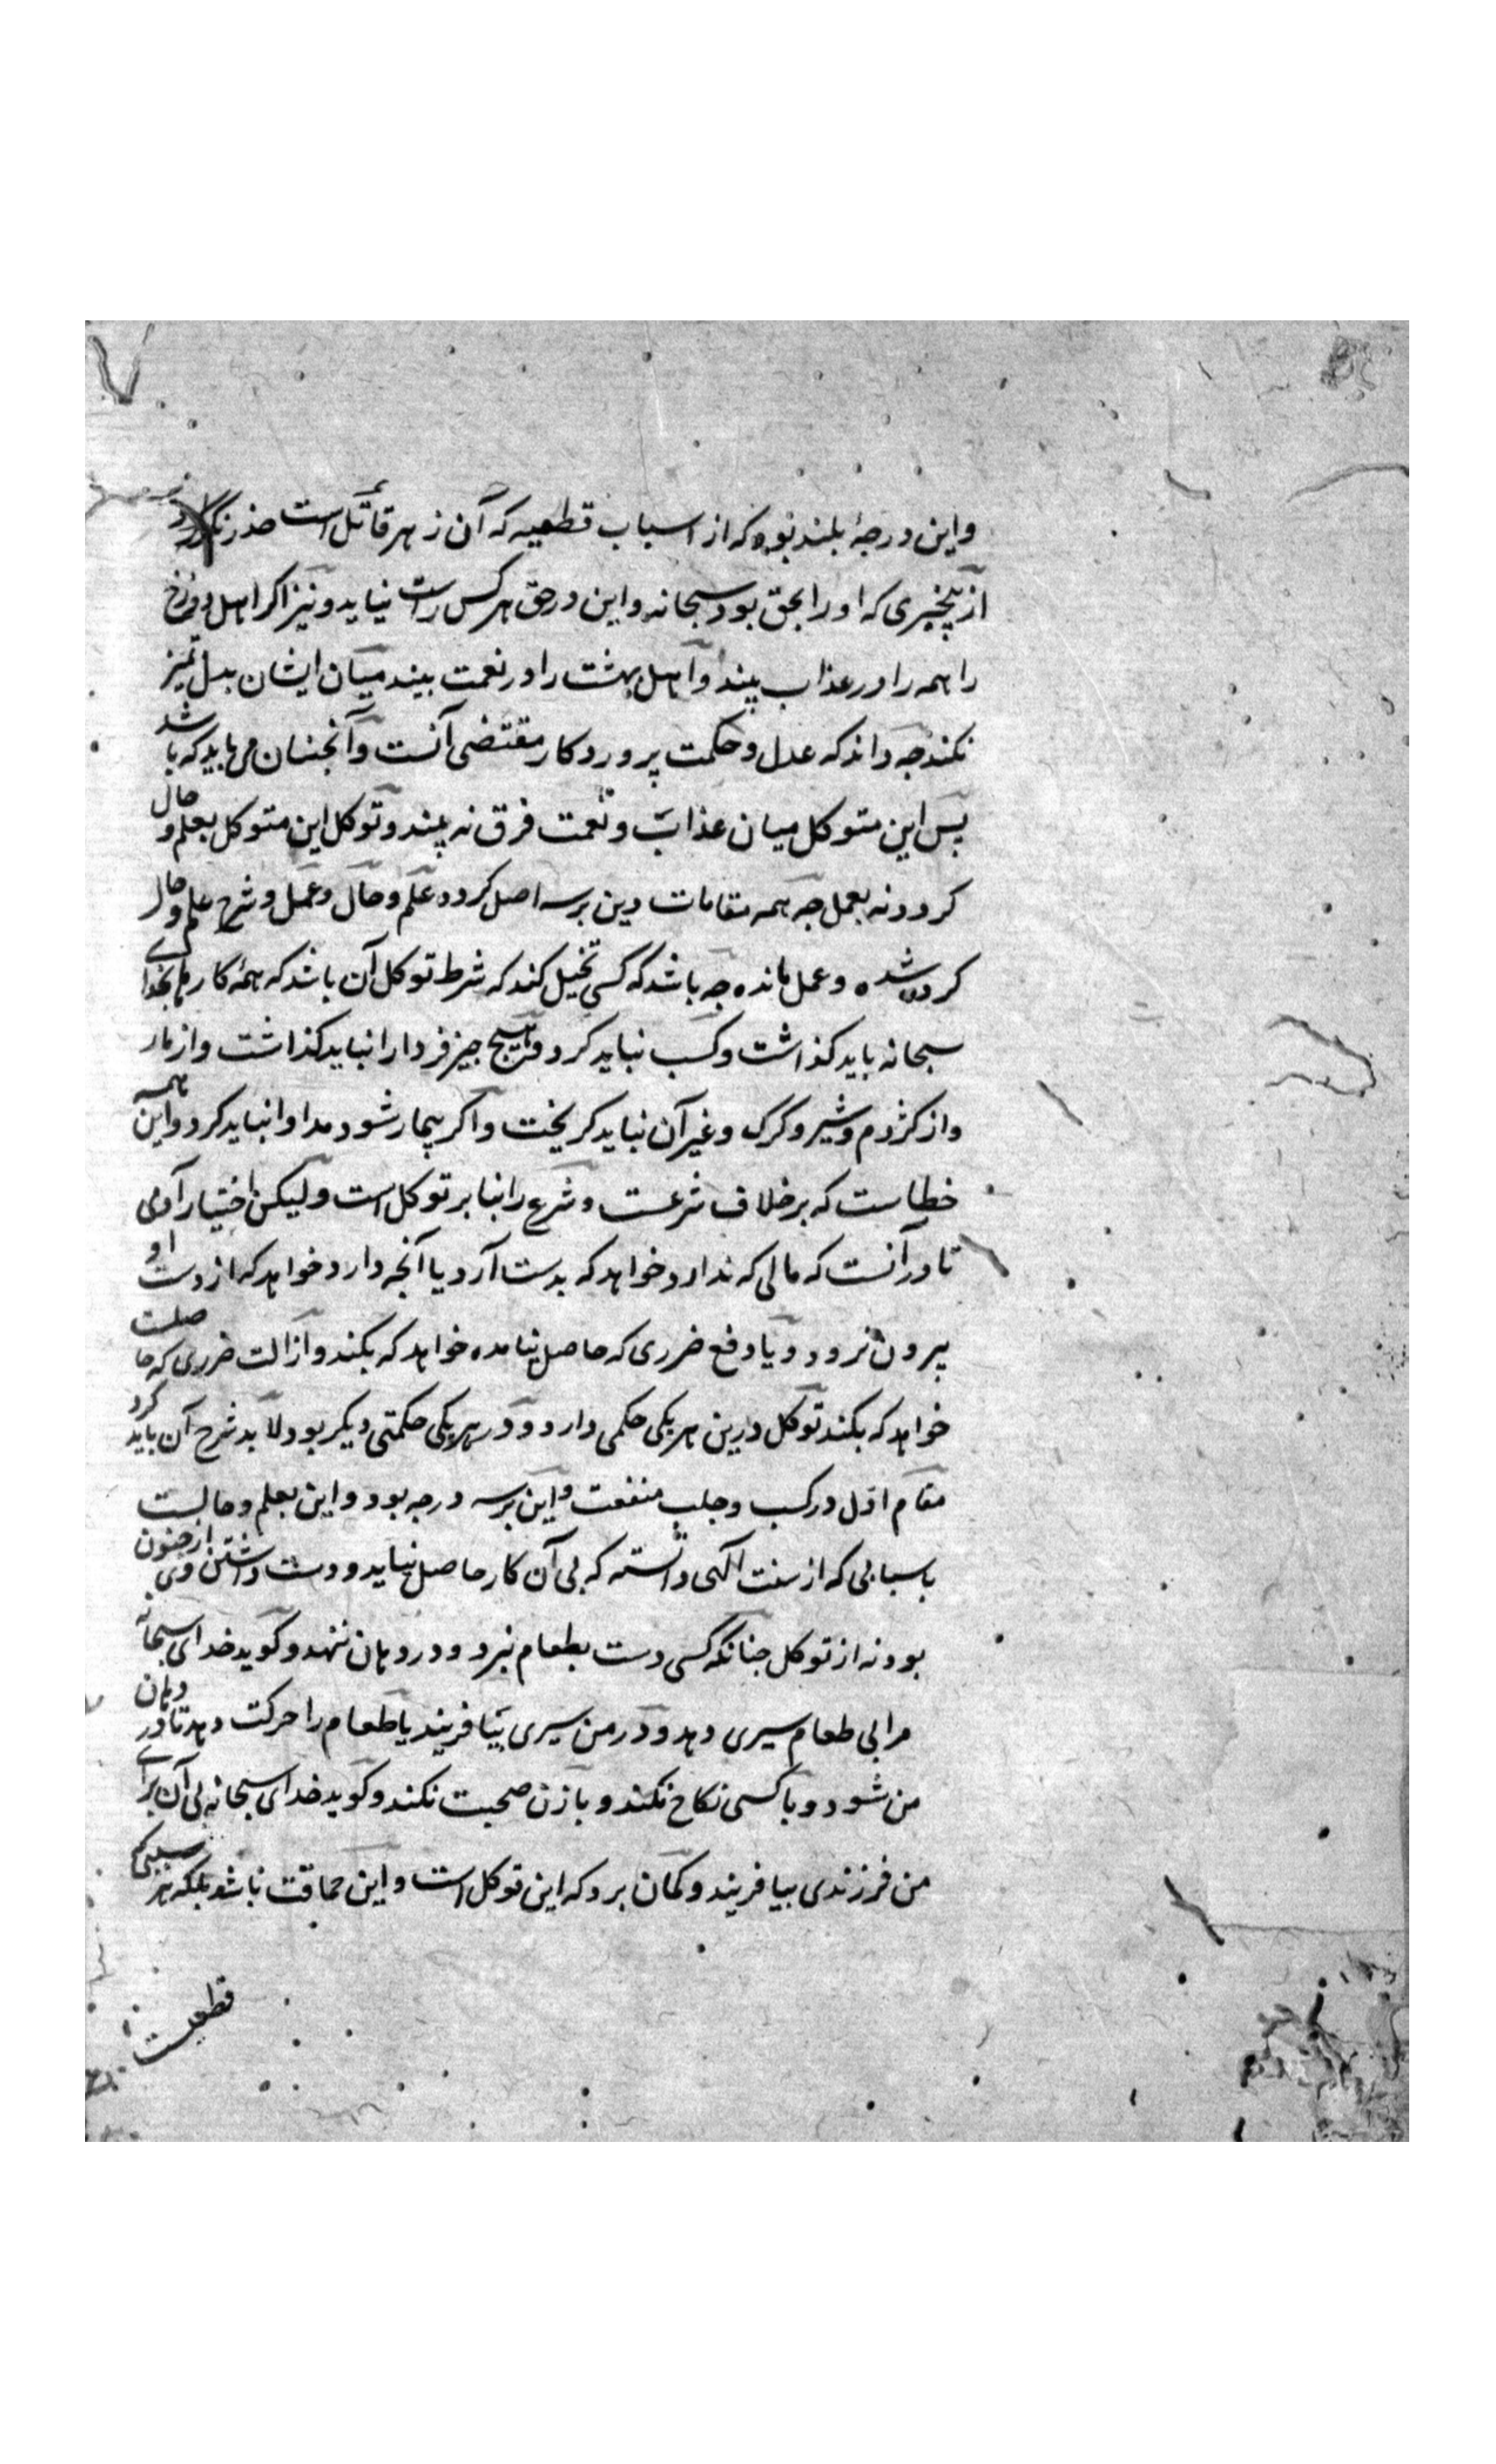 و این درجهٔ بلند بود که از اسباب قطعیه که آن زهر قاتل است حذر نکند
از بیخبری که او را بحق بود سبحانه و این در حق هر کس راست نیاید و نیز اکر اهل دوزخ
را همه را در عذاب بیند و اهل بهشت را در نعمت بیند میان ایشان بدل تمیز
نکند جه داند که عدل و حکمت پروردکار مقتضی آنست و آنجنان می باید که باشد
پس این متوکل میان عذاب و نعمت فرق نه بیند و توکل این متوکل بعلم و حال
کردد نه بعمل جه همه مقامات دین بر سه اصل کردد علم و حال و عمل و شرح علم و حال
کرده شده و عمل مانده جه باشد که کسی تخیل کند که شرط توکل آن باشد که همه کارهای بخدا
سبحانه باید کذاشت و کسب نباید کرد و هیچ جیز فردا را نباید کذاشت و از مار
و از کژدم و شیر و کرک و غیر آن نباید کریخت و اکر بیمار شود مداوا نباید کرد و این همه
خطاست که بر خلاف شرعست و شرع را بنا بر توکل است ولیکن اختیار آدمی
تا در آنست که مالی که ندارد خواهد که بدست آرد یا آنجه دارد خواهد که از دست او
بیرون نرود و یا دفع ضرری که حاصل نیامده خواهد که بکند و ازالت ضرری که حاصلست
خواهد که بکند توکل درین هر یکی حکمی دارد و در هر یکی حکمتی دیکر بود لابد شرح آن باید کرد
مقام اول در کسب و جلب منفعت و این بر سه درجه بود و این بعلم و حالست
باسبابی که از سنت الهی دانسته که بی آن کار حاصل نیاید و دست داشتن وی از جنون
بود نه از توکل جنانکه کسی دست بطعام نبرد و در دهان ننهد و کوید خدای سبحانه
مرا بی طعام سیری دهد و در من سیری بیافریند یا طعام را حرکت دهد تا در دهان
من شود و با کسی نکاح نکند و با زن صحبت نکند و کوید خدای سبحانه بی آن برای
من فرزندی بیافریند و کمان برد که این توکل است و این حماقت باشد بلکه هر سببی که
قطعیست